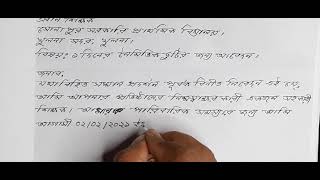 প্রধান শিক্ষক
সোনাপুর সরকারি প্রাথমিক বিদ্যালয়।
খুলনা সদর, খুলনা।
বিষয়ঃ ১ দিনের নৈমিত্তিক ছুটির জন্য আবেদন।
জনাব,
যথাবিহিত সম্মান প্রদর্শন পূর্বক বিনীত নিবেদন এই যে,
আমি আপনার প্রতিষ্ঠানের নিম্নস্বাক্ষরকারী একজন সহকারী
শিক্ষক। আমার পারিবারিক সমস্যার জন্য আমি
আগামী ০২/০২/২০২১